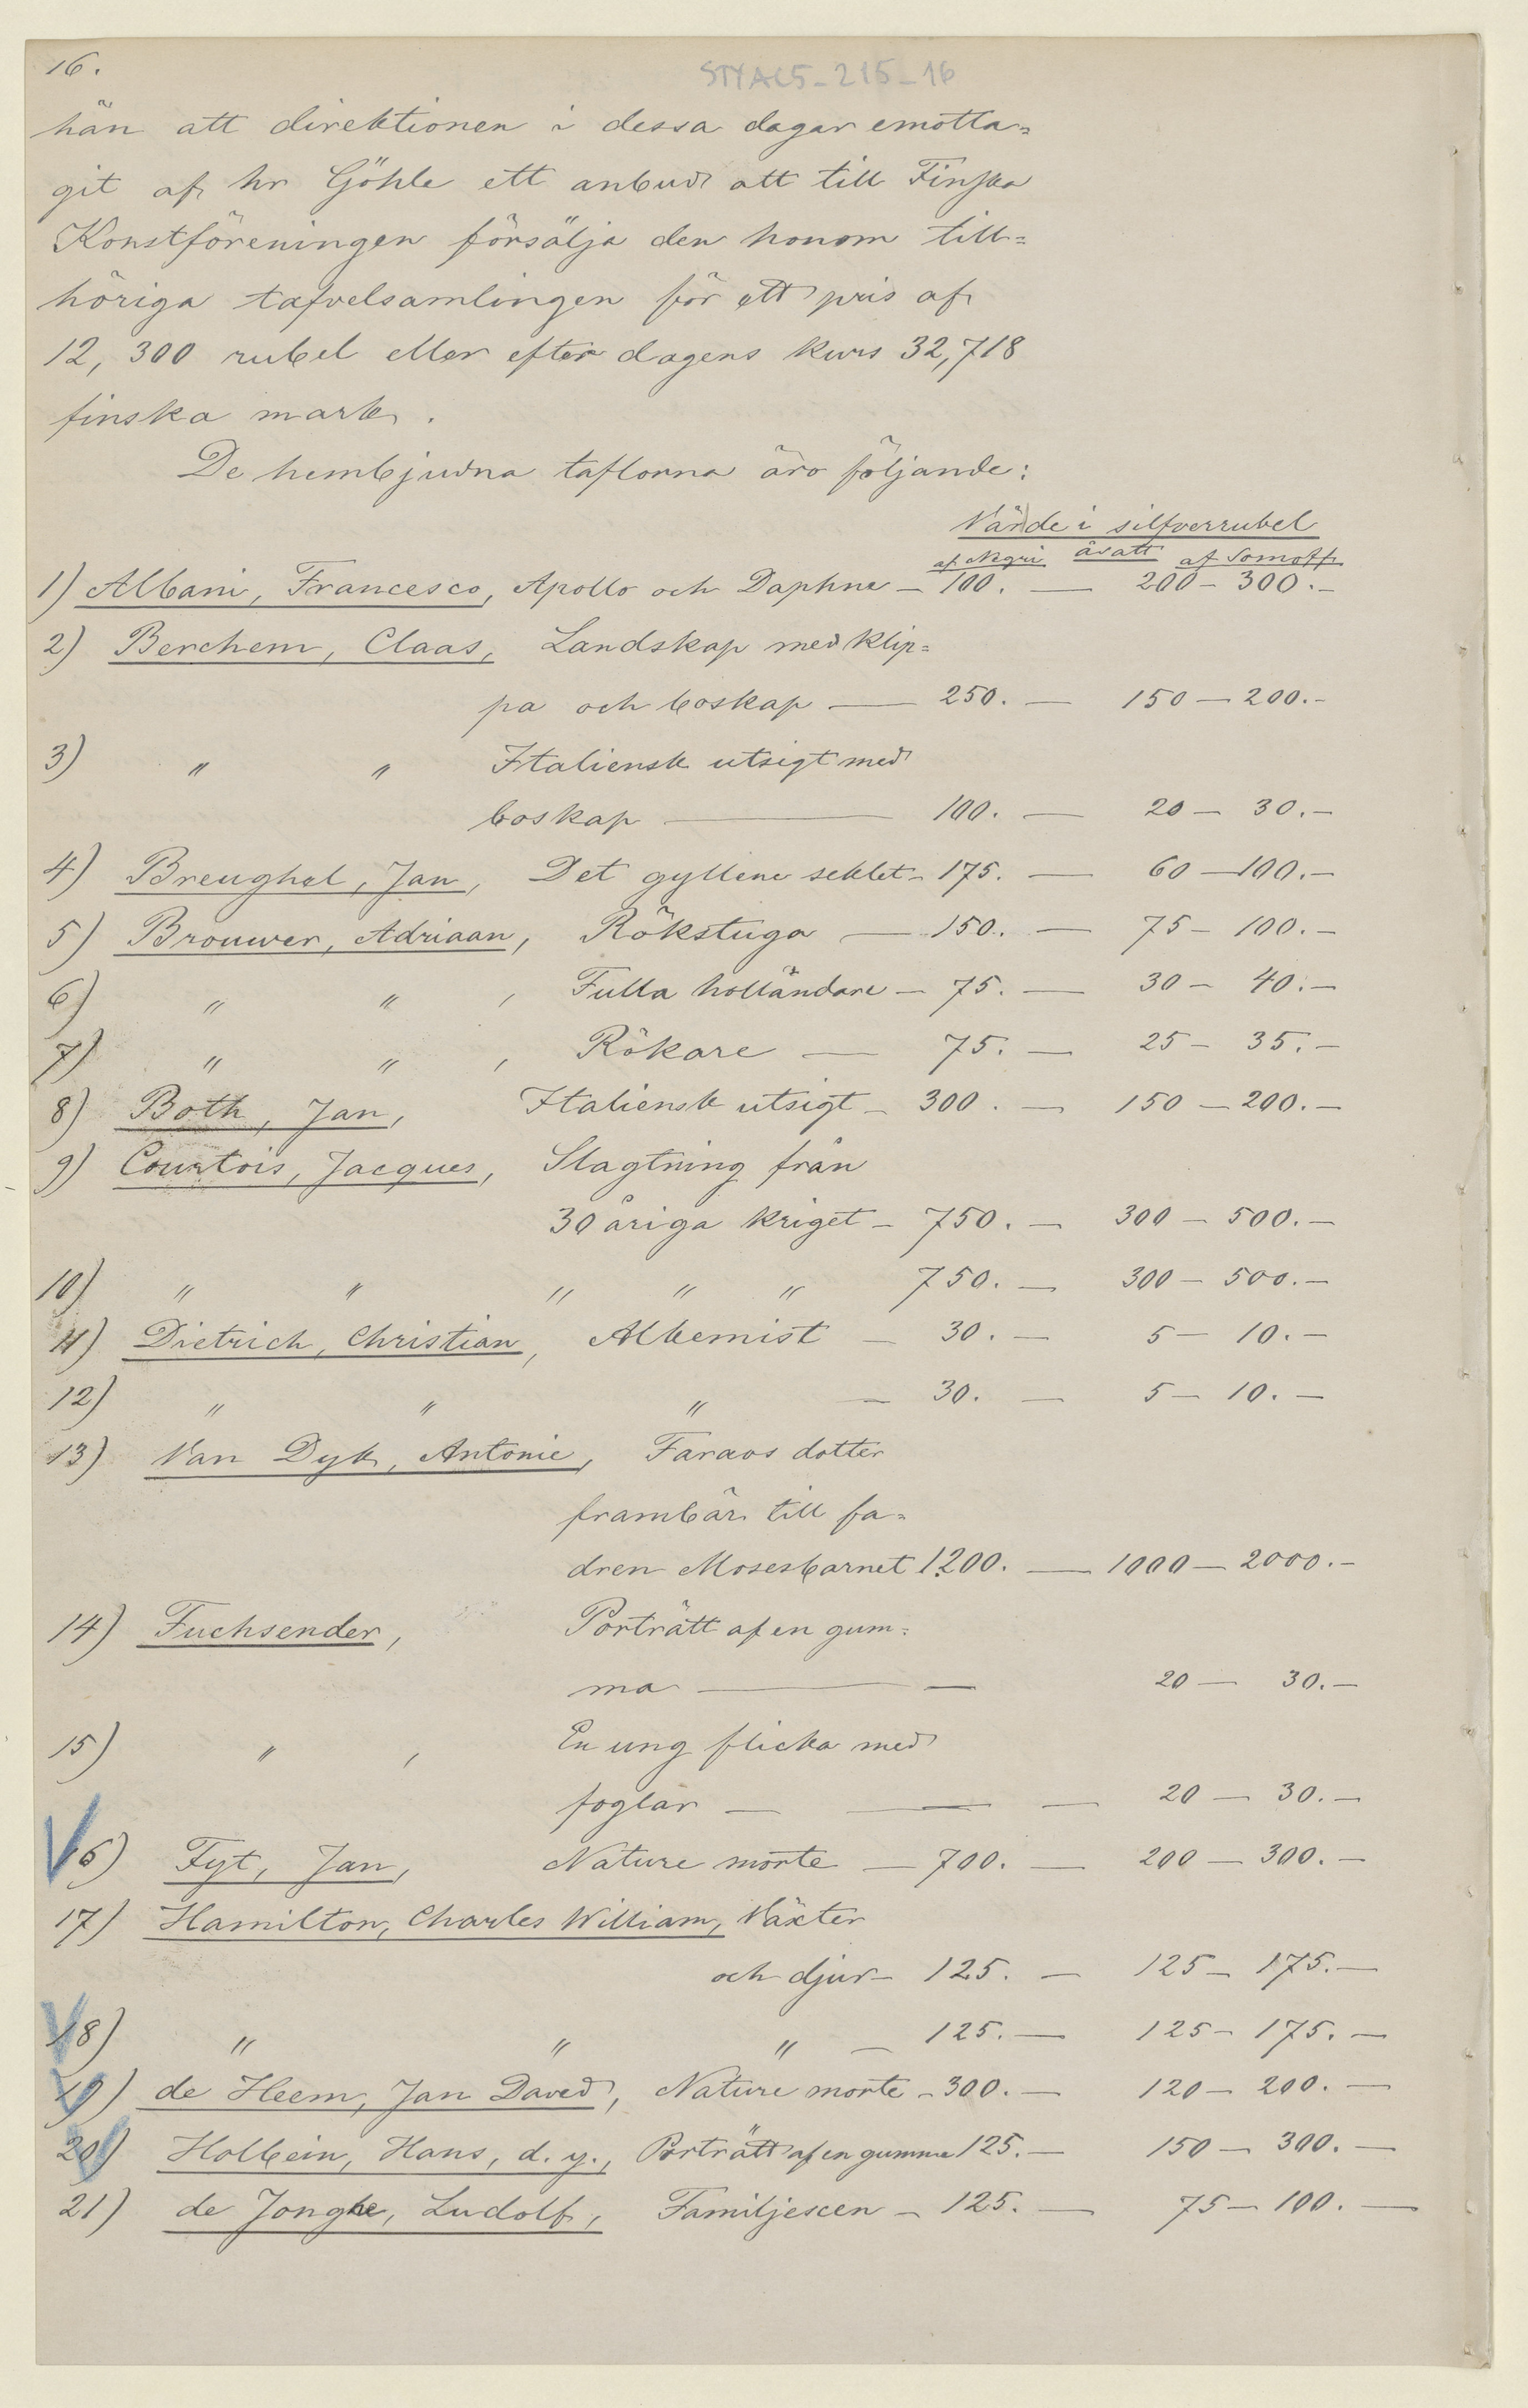 16.
STYAC5-215-16
hän att direktionen i dessa dagar emotta=
git af hr Göhle ett anbud att till Finska
Konstföreningen försälja den honom till=
höriga tafvelsamlingen för ett pris af
12,300 rubel eller efter dagens kurs 32,718
finska mark.
De hembjudna taflorna äro följande:
Värde i silfverrubel
af Negri åsatt af Somoff
1) Albani, Francesco, Apollo och Daphne — 100. — 200 — 300. —
2) Berchem, Claas, Landskap med klip=
pa och boskap — 250. — 150 — 200. —
3) " " Italiensk utsigt med
boskap — 100. — 20 — 30. —
4) Breughel, Jan, Det gyllene seklet — 175. — 60 — 100. —
5) Brouwer, Adriaan, Rökstuga — 150. — 75 — 100. —
6) " " , Fulla holländare — 75. — 30 — 40. —
7) " " , Rökare — 75. — 25 — 35. —
8) Both, Jan, Italiensk utsigt — 300. — 150 — 200. —
9) Courtois, Jacques, Slagtning från
30 åriga kriget — 750. — 300 — 500. —
10) " " " " " 750. — 300 — 500. —
11) Dietrich, Christian, Alkemist — 30. — 5 — 10. —
12) " " " — 30. — 5 — 10. —
13) Van Dyk, Antonie, Faraos dotter
frambär till fa=
dren Mosesbarnet 1200. — 1000 — 2000. —
14) Fuchsender, Porträtt af en gum=
ma — — 20 — 30. —
15) " , En ung flicka med
foglar — — — 20 — 30. —
16) Fyt, Jan, Nature morte — 700. — 200 — 300. —
17) Hamilton, Charles William, Växter
och djur — 125. — 125 — 175. —
18) " " " — 125. — 125 — 175. —
19) de Heem, Jan David, Nature morte — 300. — 120 — 200. —
20) Holbein, Hans, d. y., Porträtt af en gumma 125. — 150 — 300. —
21) de Jonghe, Ludolf, Familjescen — 125. — 75 — 100. —